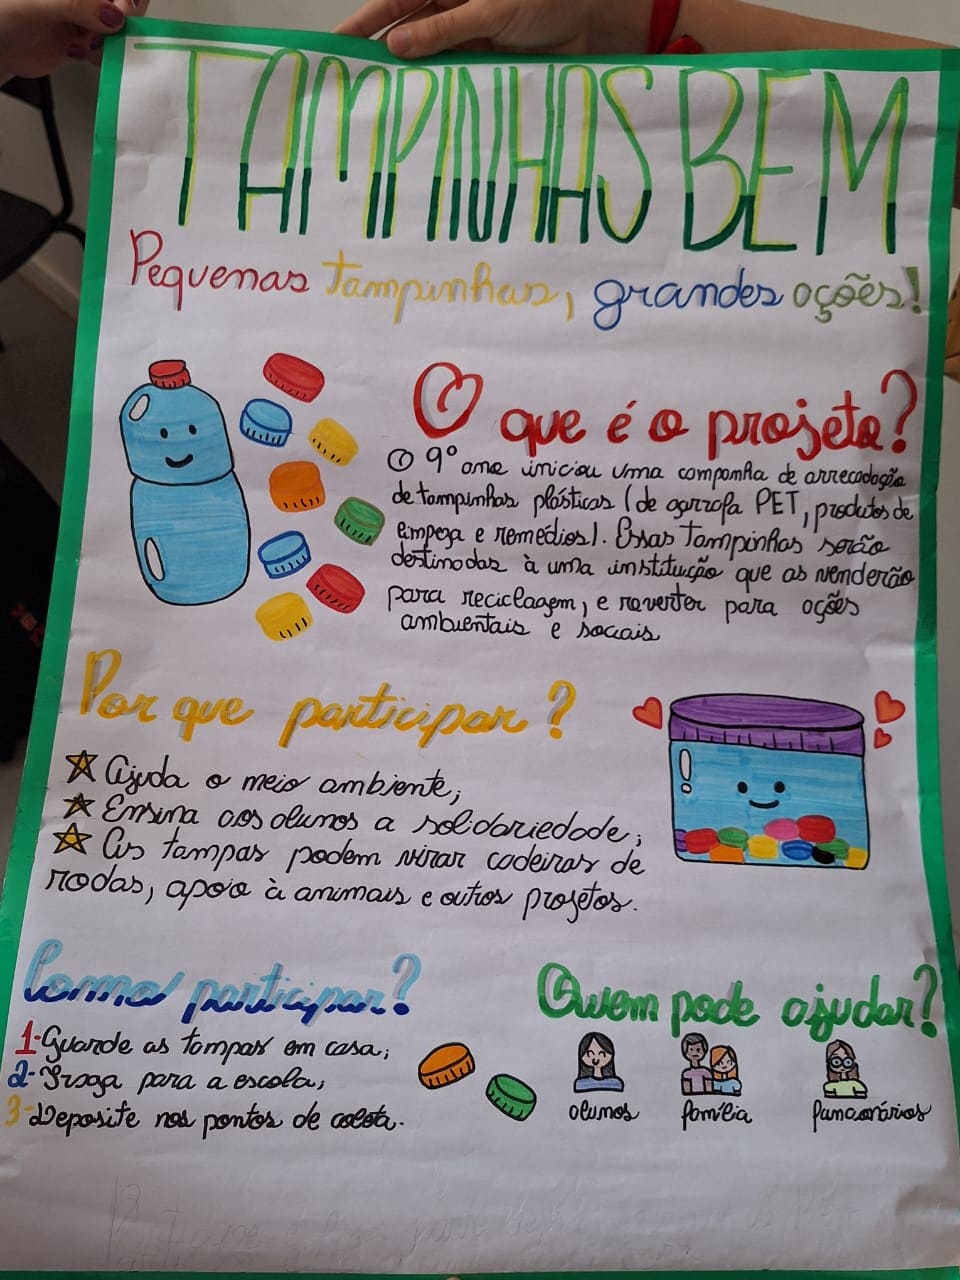 TAMPINHAS BEM
Pequenas tampinhas, grandes ações!
O que é o projeto?
O 9º ano iniciou uma campanha de arrecadação
de tampinhas plásticas (de garrafa PET, produtos de
limpeza e remédios). Essas tampinhas serão
destinadas à uma instituição que as venderão
para reciclagem, e reverter para ações
ambientais e sociais
Por que participar?
Ajuda o meio ambiente;
Ensina aos alunos a solidariedade;
As tampas podem virar cadeiras de
rodas, apoio à animais e outros projetos.
Como participar?
1-Guarde as tampas em casa;
2-Traga para a escola;
3-Deposite nos pontos de coleta.
Quem pode ajudar?
alunos
família
funcionários